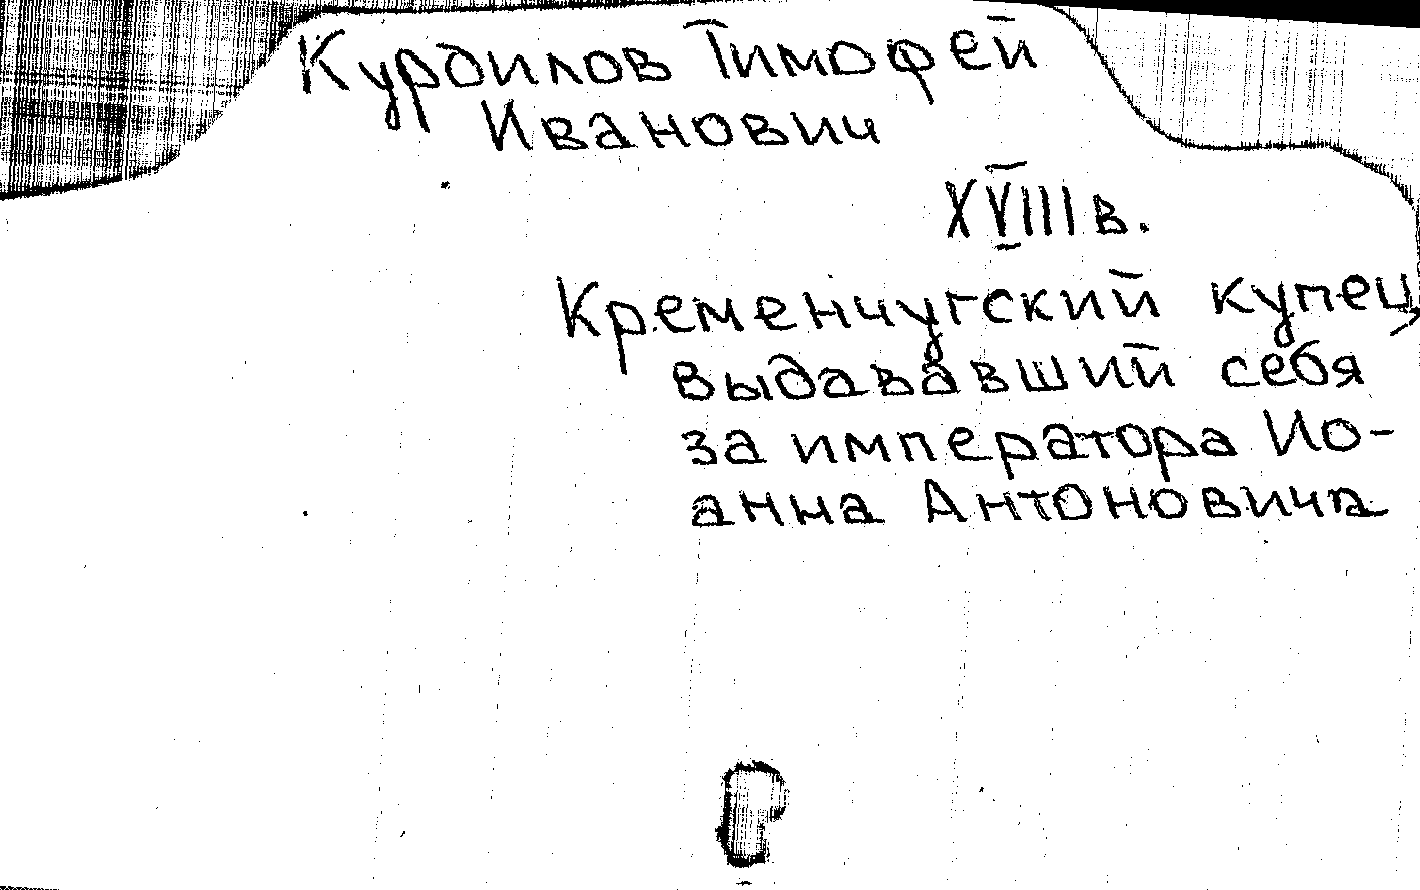 Курдилов Тимофей
Иванович
XVIII в.
Кременчугский купец,
выдававший себя
за императора Ио-
анна Антоновича